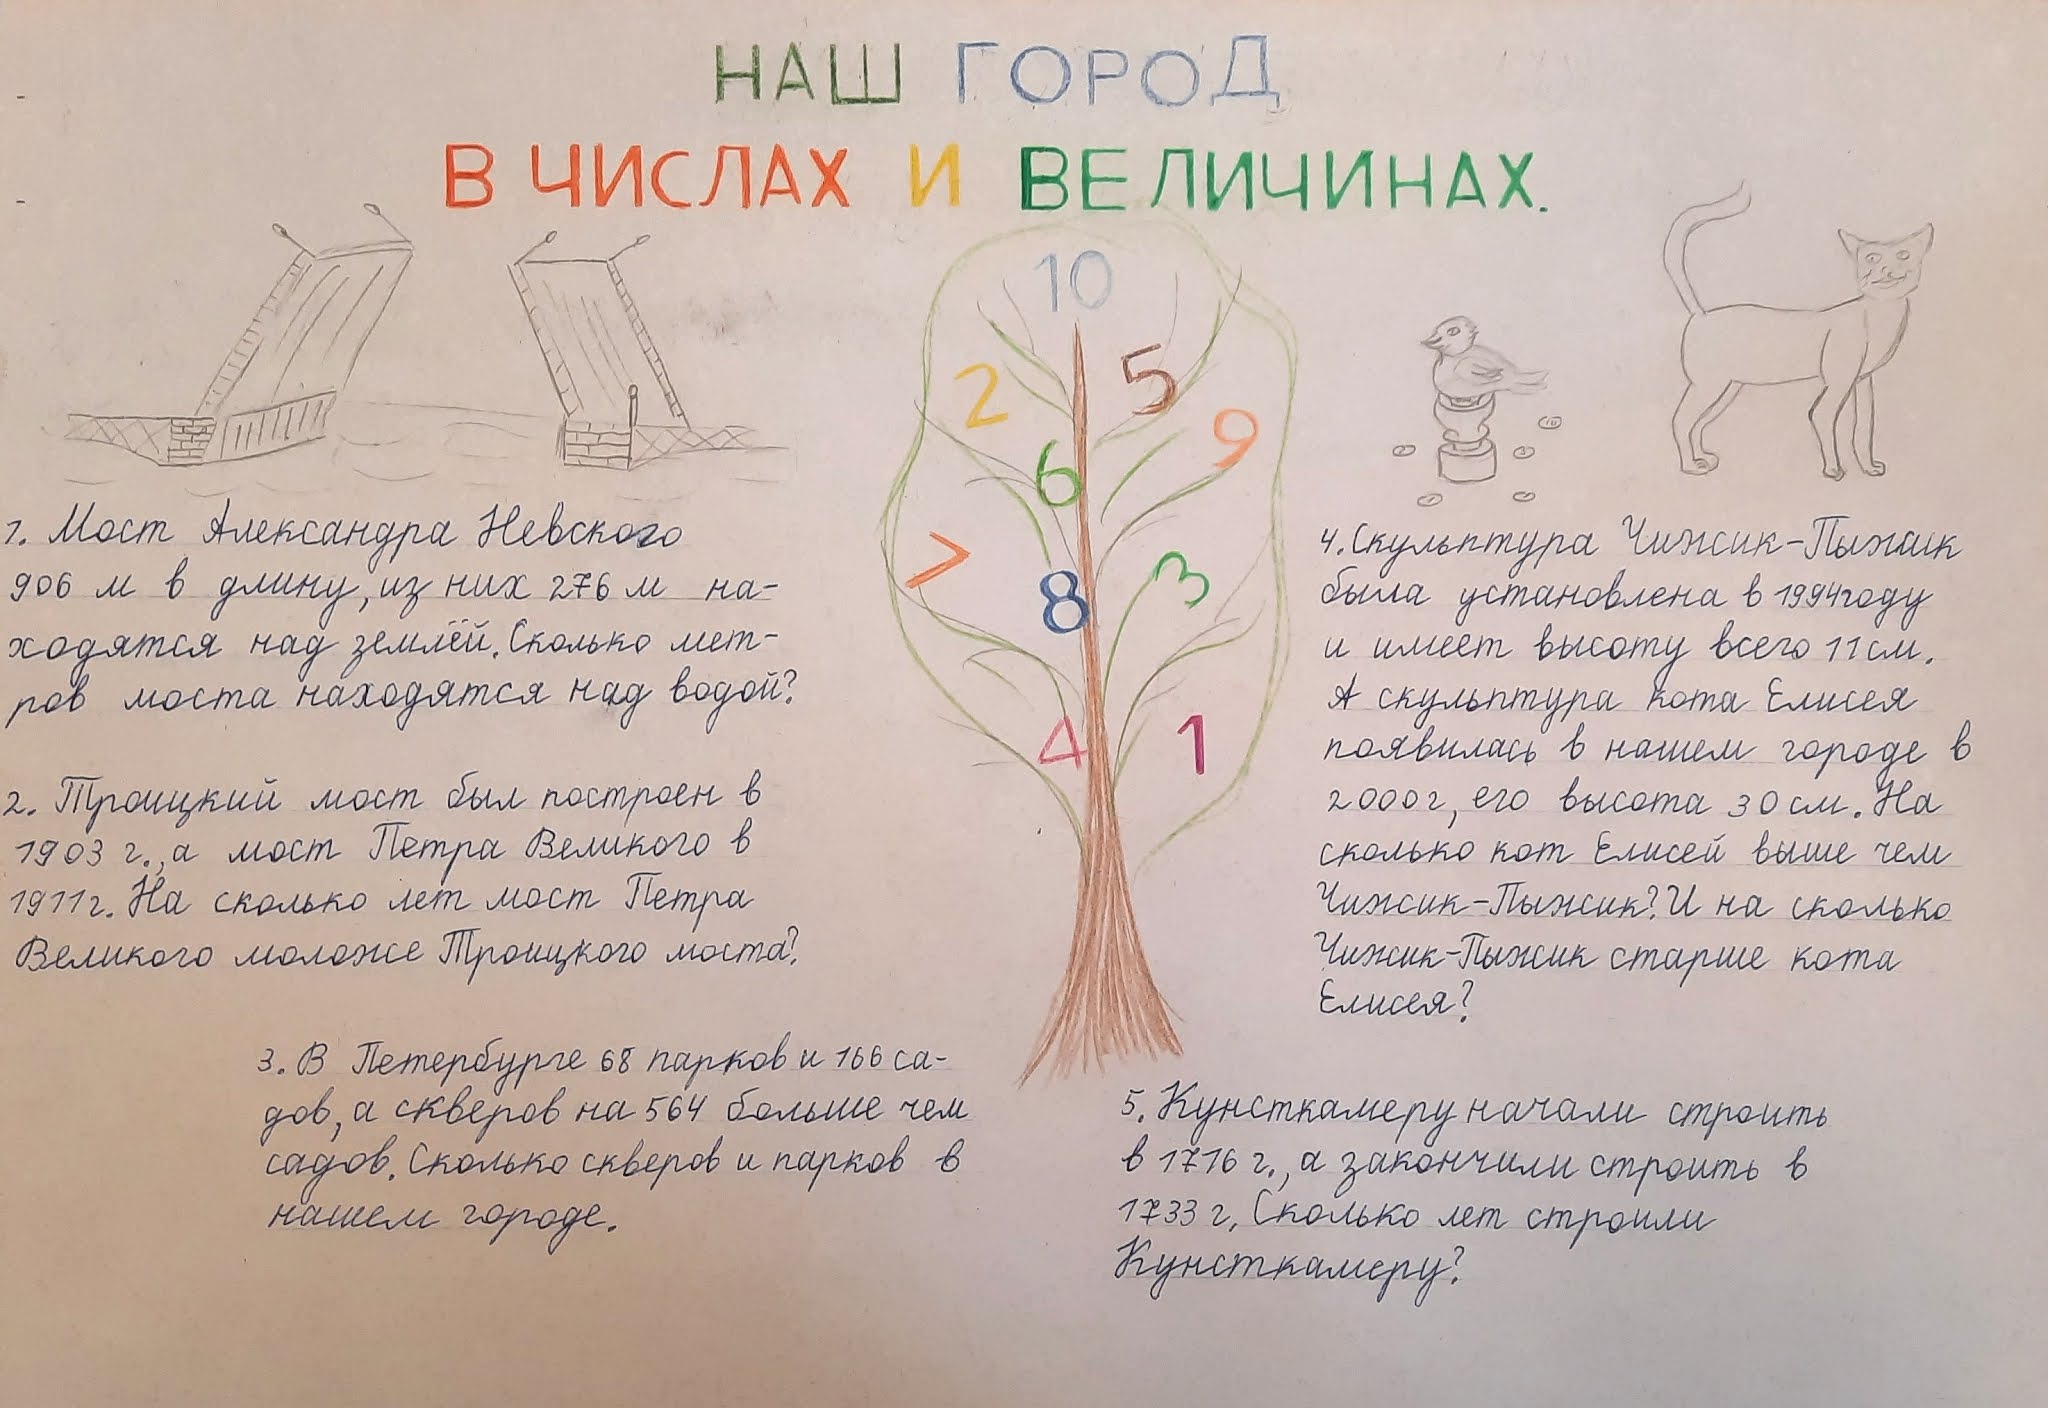 НАШ ГОРОД
В ЧИСЛАХ И ВЕЛИЧИНАХ.
10
2
5
9
6
7
8
3
4
1
1. Мост Александра Невского
906 м в длину, из них 276 м на-
ходятся над землёй. Сколько мет-
ров моста находятся над водой?
2. Троицкий мост был построен в
1903 г., а мост Петра Великого в
1911г. На сколько лет мост Петра
Великого моложе Троицкого моста?
3. В Петербурге 68 парков и 166 са-
дов, а скверов на 564 больше чем
садов. Сколько скверов и парков в
нашем городе.
4. Скульптура Чижик-Пыжик
была установлена в 1994году
и имеет высоту всего 11см.
А скульптура кота Елисея
появилась в нашем городе в
2000г, его высота 30см. На
сколько кот Елисей выше чем
Чижик-Пыжик? И на сколько
Чижик-Пыжик старше кота
Елисея?
5. Кунсткамеру начали строить
в 1716 г., а закончили строить в
1733 г. Сколько лет строили
Кунсткамеру?